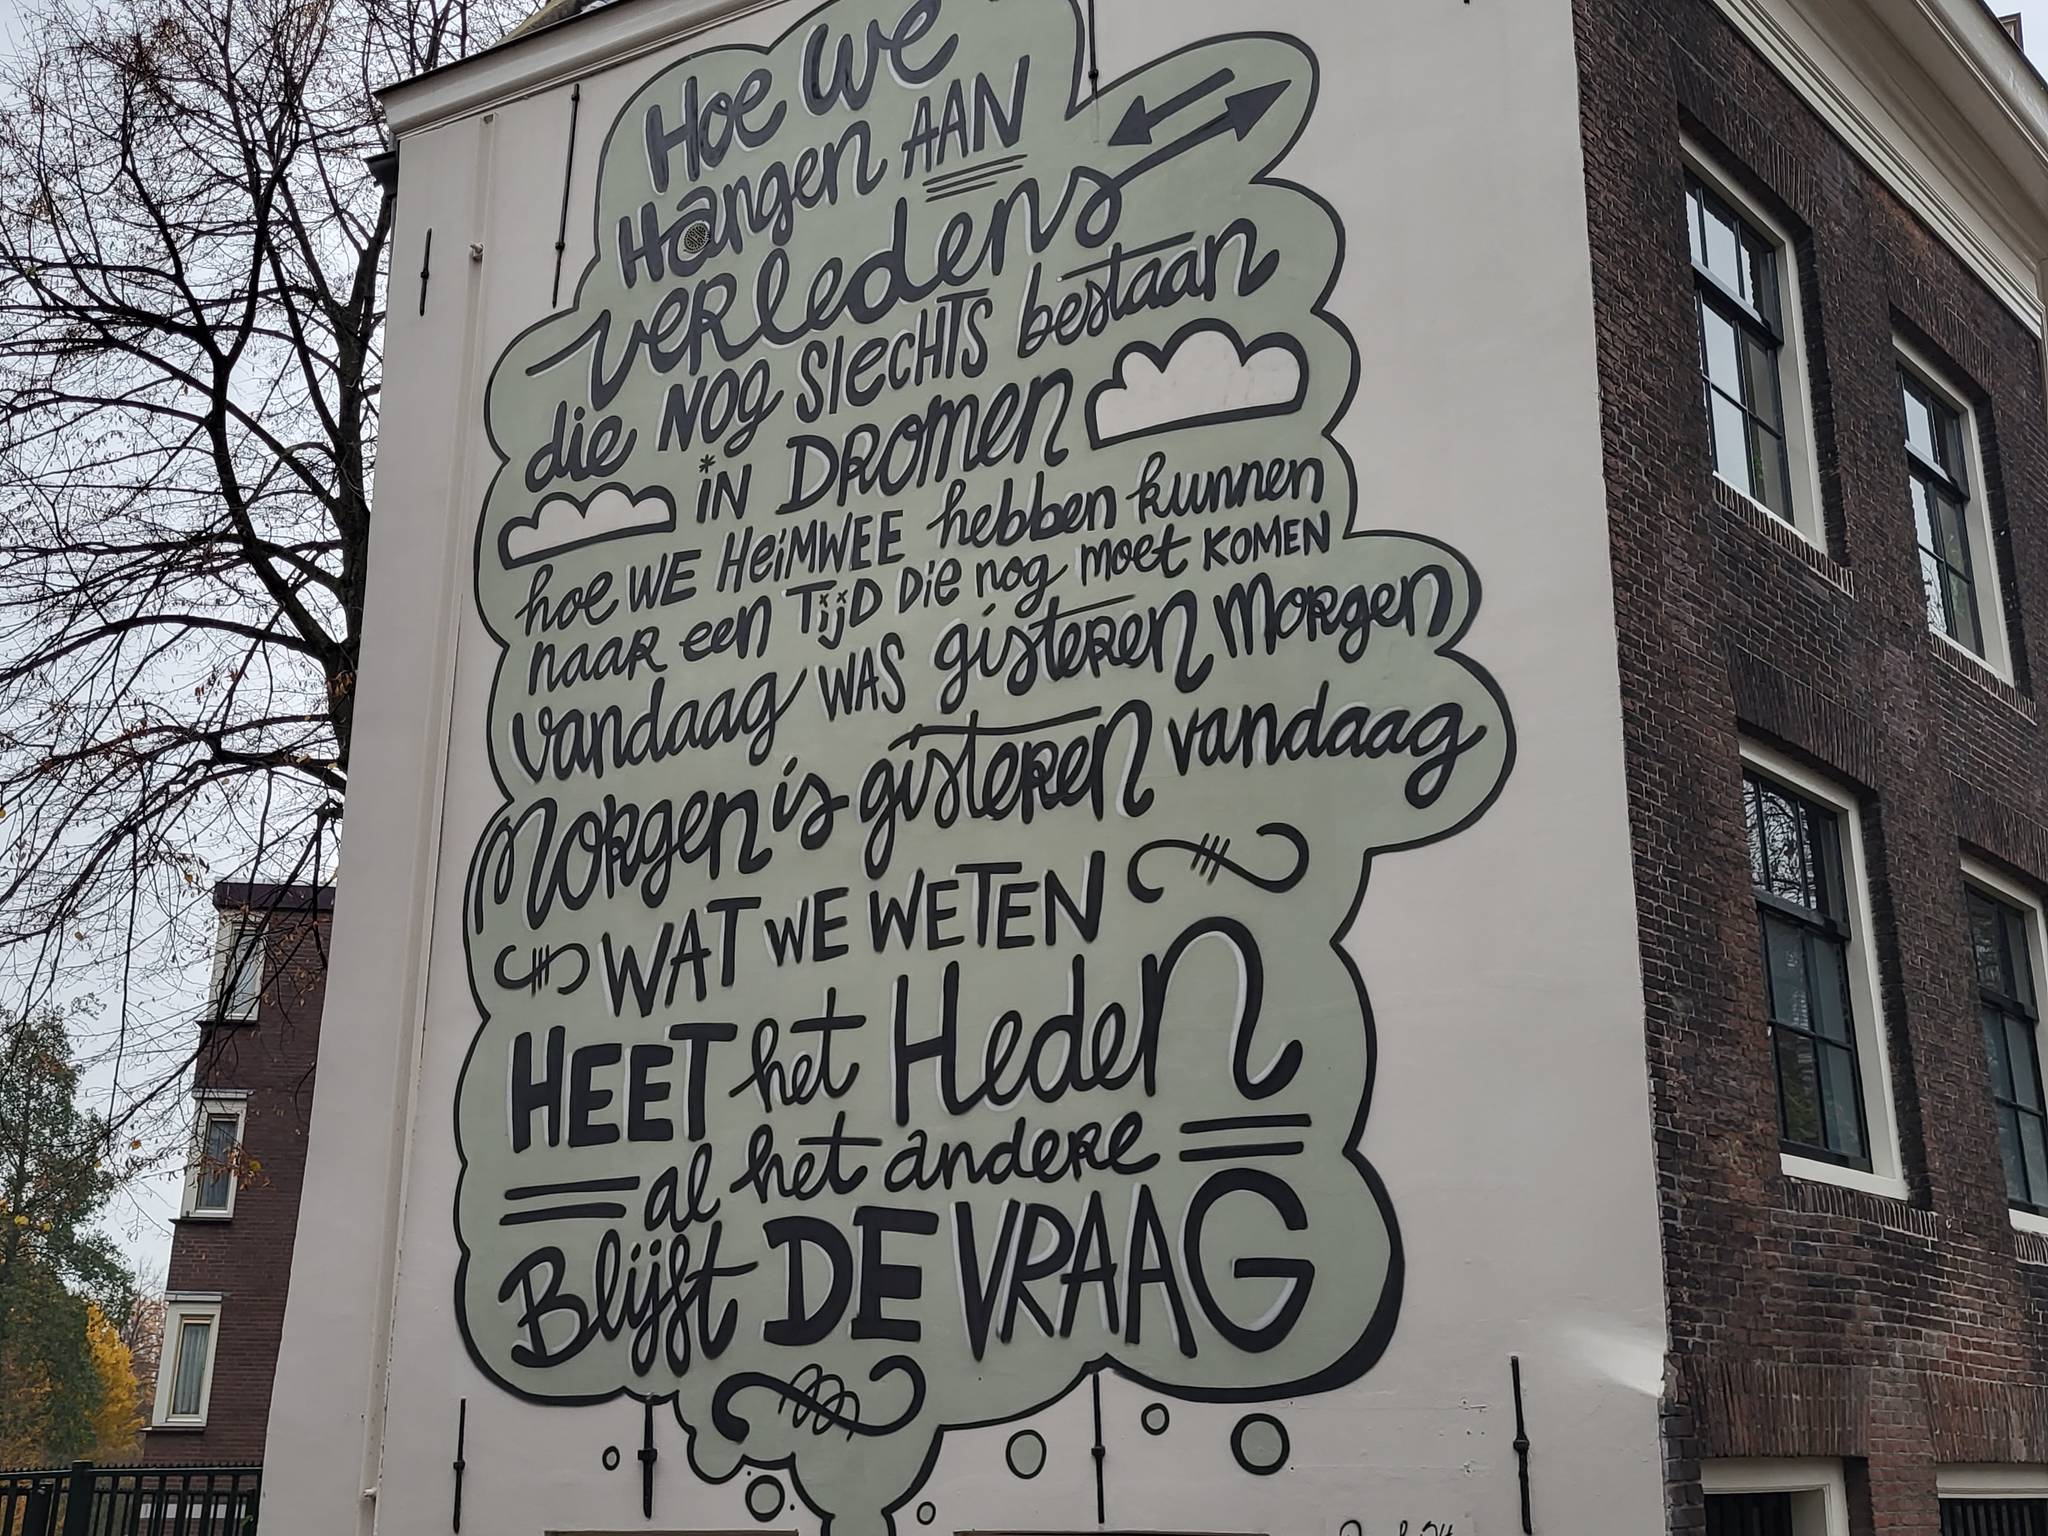 Hoe we
Hangen AAN
verledens
die NOG slechts bestaan
in DROMEN
hoe WE HeiMWEE hebben kunnen
naar een TijD Die nog moet KOMEN
Vandaag WAS gisteren Morgen
Morgen is gisteren vandaag
WAT WE WETEN
HEET het Heden
al het andere
Blijft DE VRAAG